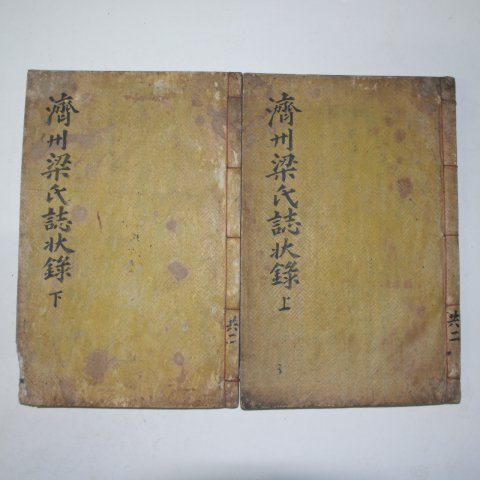 濟州梁氏誌狀錄 上
共二
濟州梁氏誌狀錄 下
共二